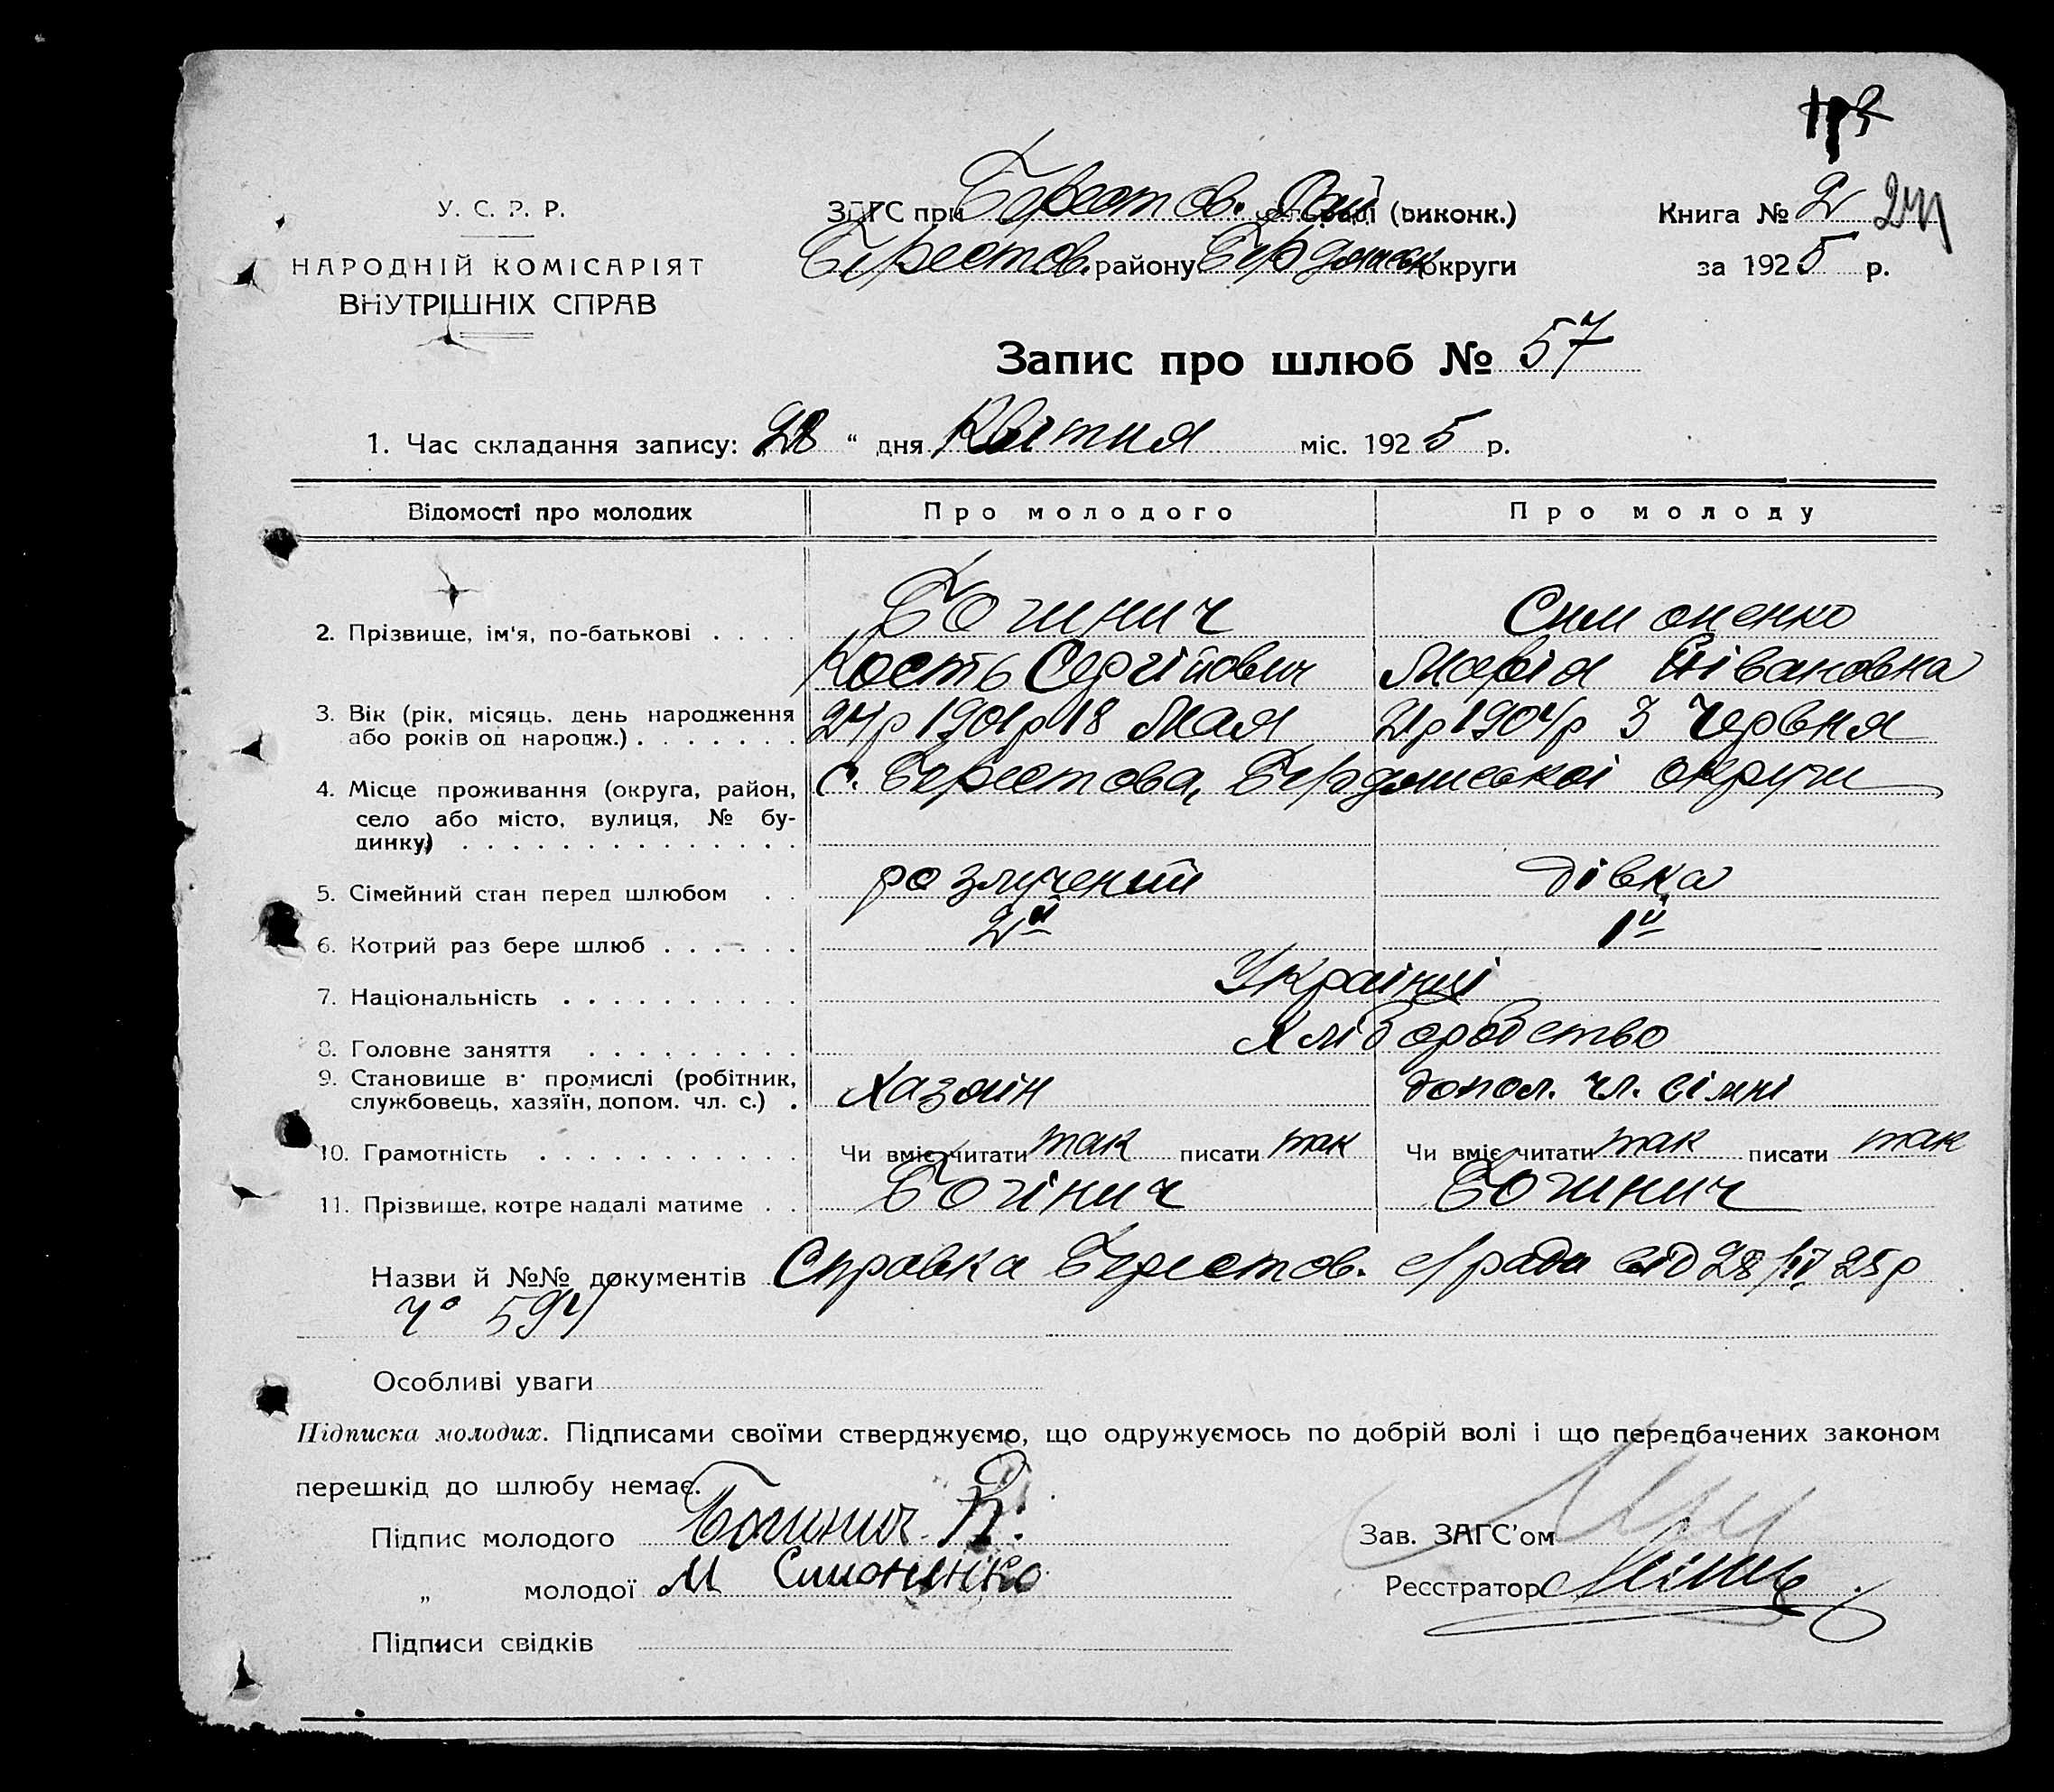 У. С. Р. Р.
НАРОДНІЙ КОМІСАРІЯТ
ВНУТРІШНІХ СПРАВ
ЗАГС при Берестов. Рай (виконк.)
Берестов. району Бердянськ округи
Книга № 2 24
за 1925 р.
Запис про шлюб № 57
1. Час складання запису: 28 " дня Квітня міс. 1925 р.
Відомості про молодих Про молодого Про молоду
Богинич Симоненко
2. Прізвище, ім'я, по-батькові
Кость Сергійович Марія Йівановна
3. Вік (рік, місяць, день народження
або років од народж.) 24р 1901р 18 Мая 21р 1904р 3 Червня
4. Місце проживання (округа, район, с. Берестова, Бердянської округи
село або місто, вулиця, № бу-
динку)
5. Сімейний стан перед шлюбом розлучений дівка
6. Котрий раз бере шлюб 2й 1й
7. Національність Українці
8. Головне заняття Хліборобство
9. Становище в промислі (робітник,
службовець, хазяїн, допом. чл. с.) Хазяїн допом. чл. сімні
10. Грамотність Чи вміє читати так писати так Чи вміє читати так писати так
11. Прізвище, котре надалі матиме Богінич Богинич
Назви й №№ документів Справка Берестов. с/ради від 28/IV 25р
чо 594
Особливі уваги
Підписка молодих. Підписами своїми стверджуємо, що одружуємось по добрій волі і що передбачених законом
перешкід до шлюбу немає.
Підпис молодого Богинич К.
Зав. ЗАГС'ом
„ молодої М Симоненко
Реєстратор
Підписи свідків